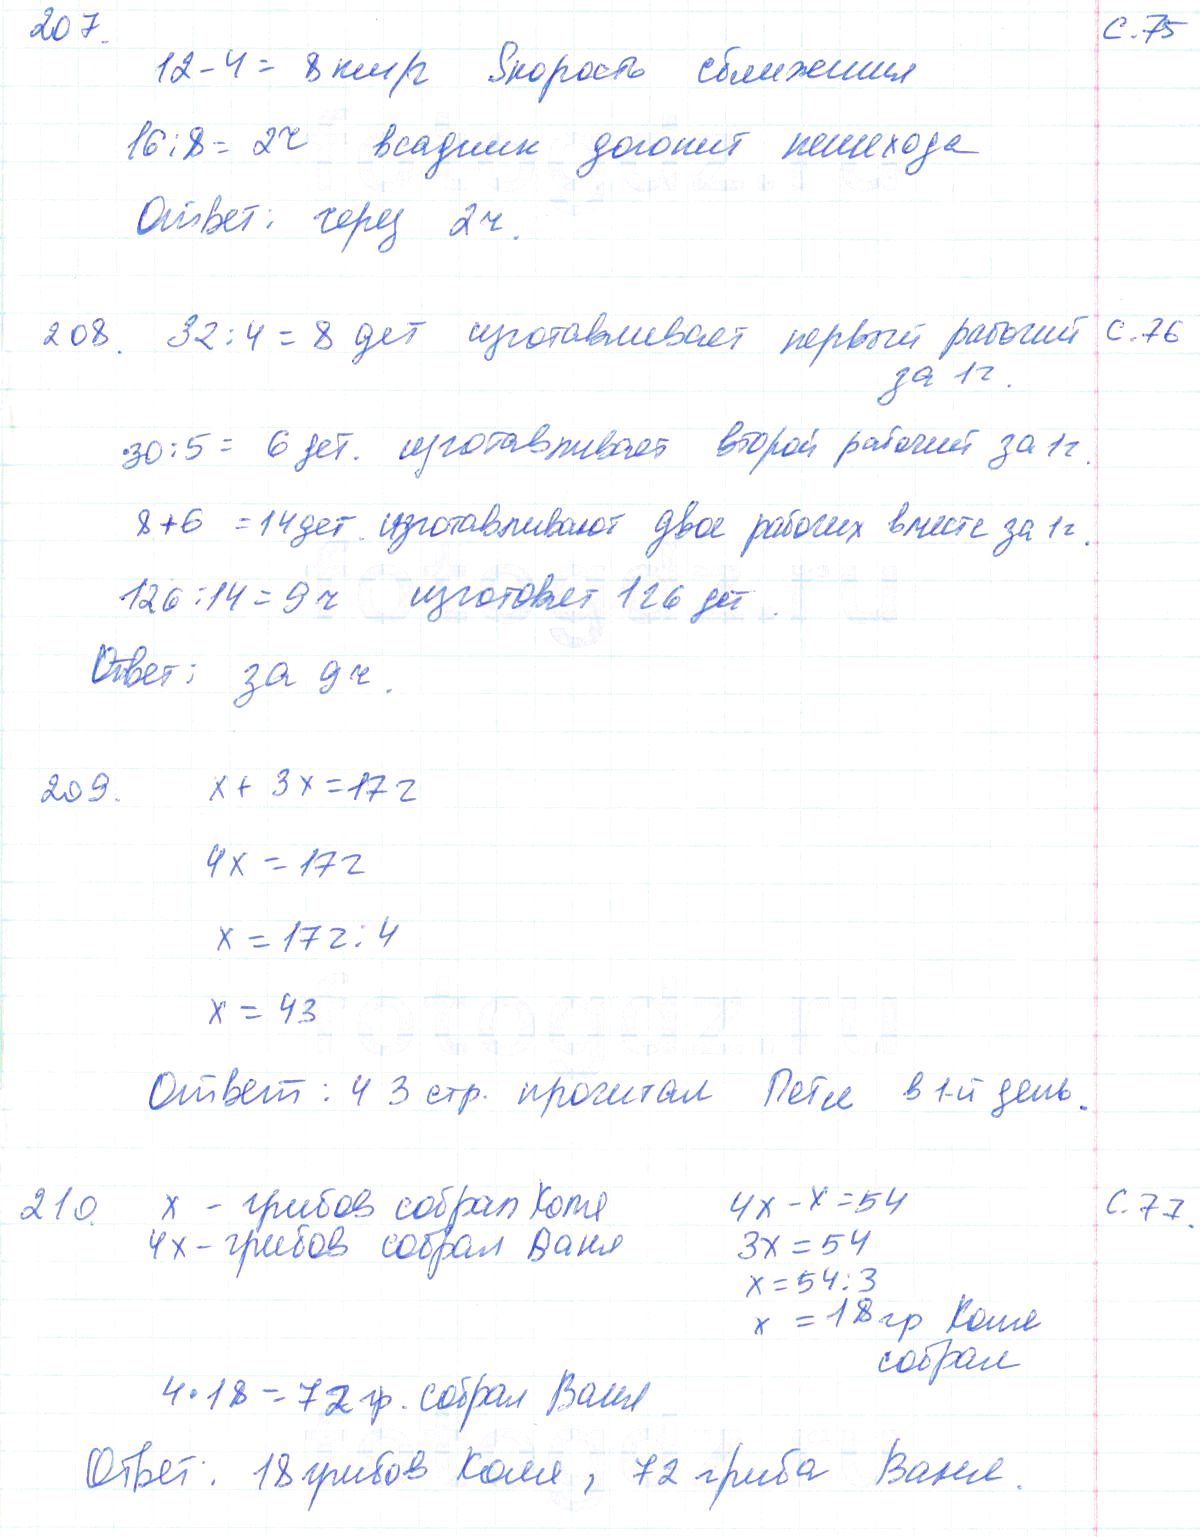 207. с.75
12-4= 8 км/ч Sкорость сближения
16:8= 2ч всадник догонит пешехода
Ответ: через 2ч.
208. 32:4=8 дет изготавливает первый рабочий с.76
за 1ч.
30:5= 6 дет. изготавливает второй рабочий за 1ч.
8+6 =14 дет. изготавливают двое рабочих вместе за 1ч.
126:14=9ч изготовят 126 дет.
Ответ: за 9ч.
209. x+ 3x=172
4x=172
x=172:4
x=43
Ответ: 43 стр. прочитал Петя в 1-й день.
210. x - грибов собрал Коля 4x-x=54 с.77.
4x-грибов собрал Ваня 3x=54
x=54:3
x =18 гр Коля
собрал
4•18=72 гр. собрал Ваня
Ответ. 18 грибов Коля, 72 гриба Ваня.